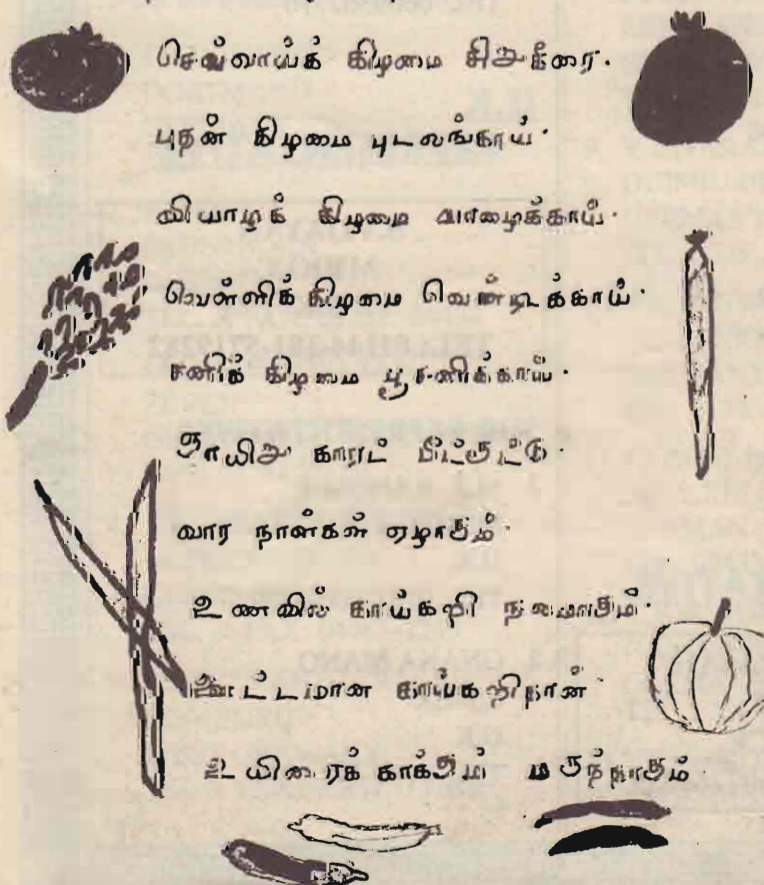 செவ்வாய்க் கிழமை சிறுகீரை.
புதன் கிழமை புடலங்காய்.
வியாழக் கிழமை வாழைக்காய்.
வெள்ளிக் கிழமை வெண்டிக்காய்.
சனிக் கிழமை பூசனிக்காய்.
ஞாயிறு காரட் பீட்ரூட்டு.
வார நாள்கள் ஏழாகும்.
உணவில் காய்கறி நலமாகும்.
ஊட்டமான காய்கறிதான்
உயிரைக் காக்கும் மருந்தாகும்.